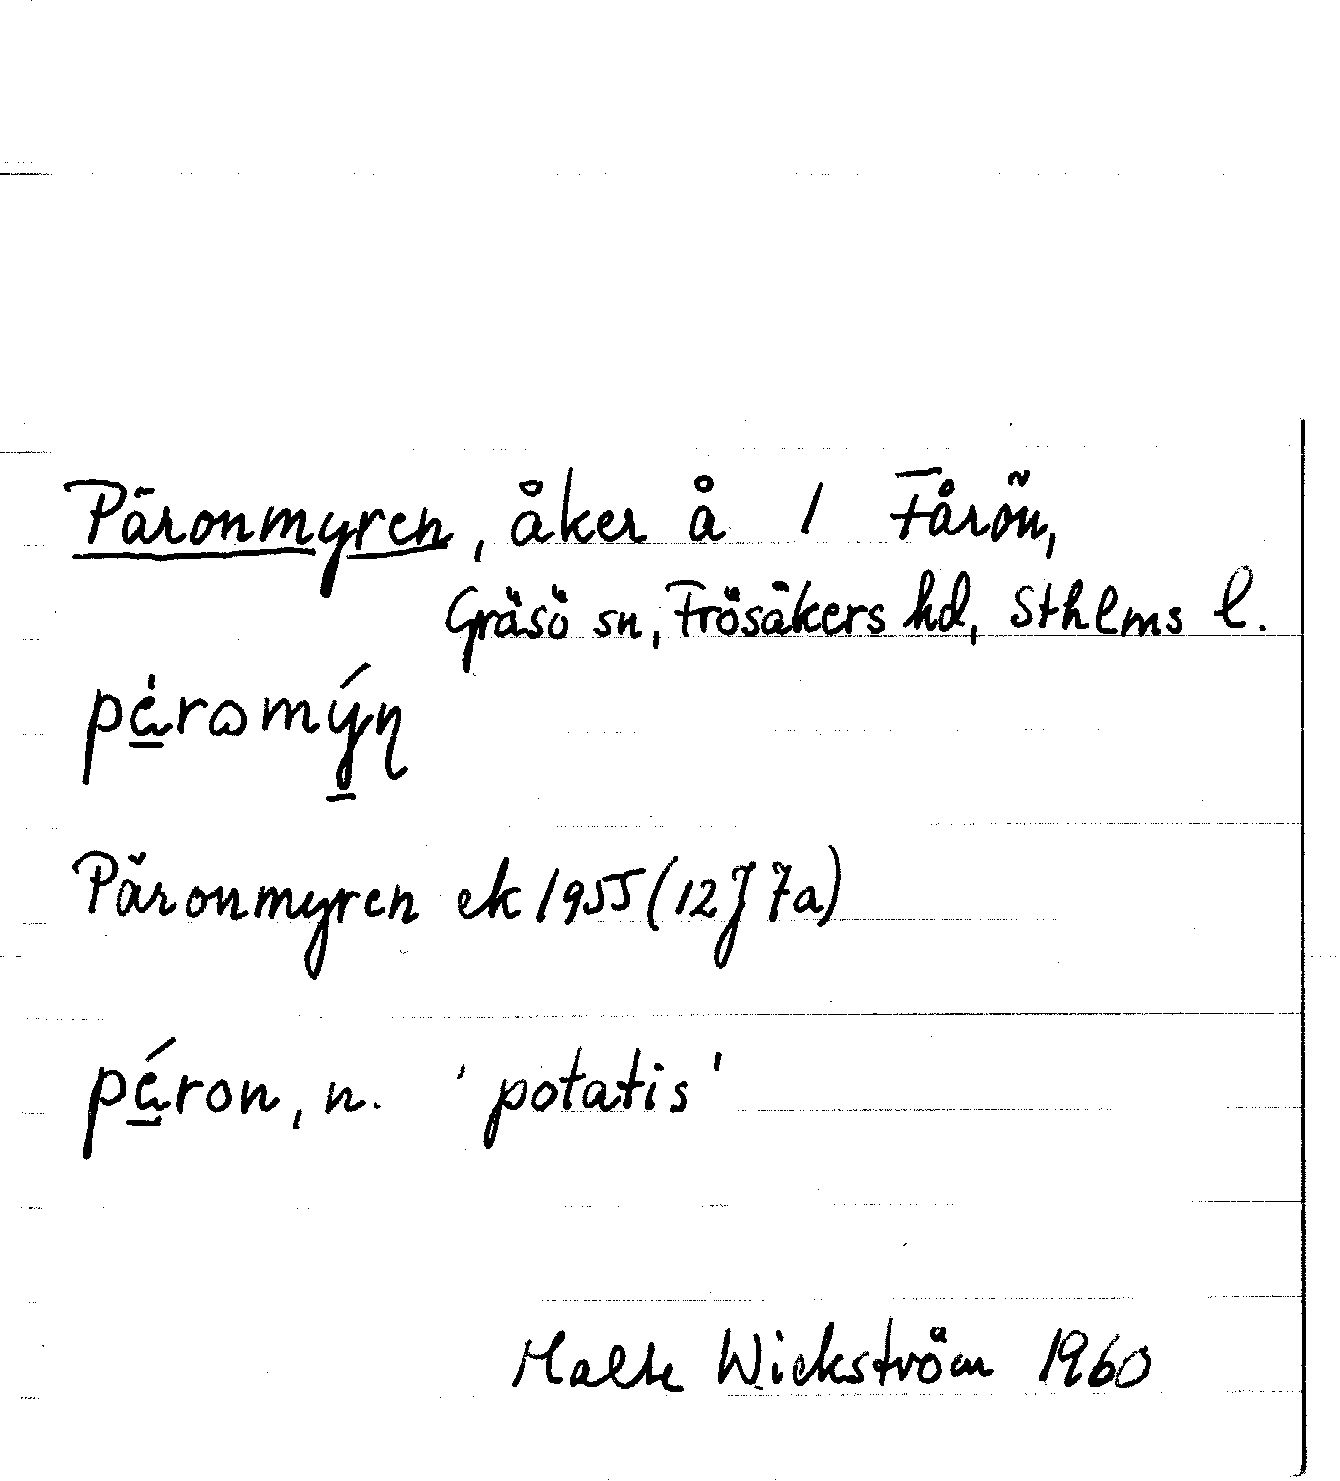 Päronmyren, åker å 1 Fårön,
Gräsö sn, Frösåkers hd, Sthlms l.
pä̀rωmýɳ
Päronmyren ek 1955 (12J 7a)
pä́ron, n. 'potatis'
Malte Wickström 1960